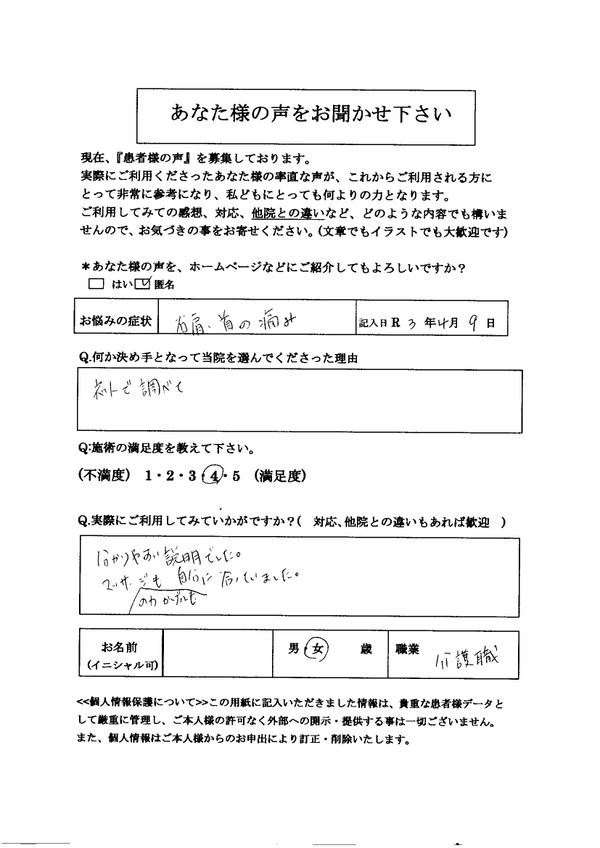 あなた様の声をお聞かせ下さい
現在、『患者様の声』を募集しております。
実際にご利用くださったあなた様の率直な声が、これからご利用される方に
とって非常に参考になり、私どもにとっても何よりの力となります。
ご利用してみての感想、対応、他院との違いなど、どのような内容でも構いま
せんので、お気づきの事をお寄せください。(文章でもイラストでも大歓迎です)
*あなた様の声を、ホームページなどにご紹介してもよろしいですか?
はい 匿名
お悩みの症状 右肩、首の痛み 記入日 R 3 年 4 月 9 日
Q.何か決め手となって当院を選んでくださった理由
ネットで調べて
Q:施術の満足度を教えて下さい。
(不満度) 1・2・3・4・5 (満足度)
Q.実際にご利用してみていかがですか?( 対応、他院との違いもあれば歓迎 )
分かりやすい説明でした。
マッサージも 自分に合っていました。
の力かげんも
お名前 男・女 歳 職業 介護職
(イニシャル可)
<<個人情報保護について>>この用紙に記入いただきました情報は、貴重な患者様データと
して厳重に管理し、ご本人様の許可なく外部への開示・提供する事は一切ございません。
また、個人情報はご本人様からのお申出により訂正・削除いたします。